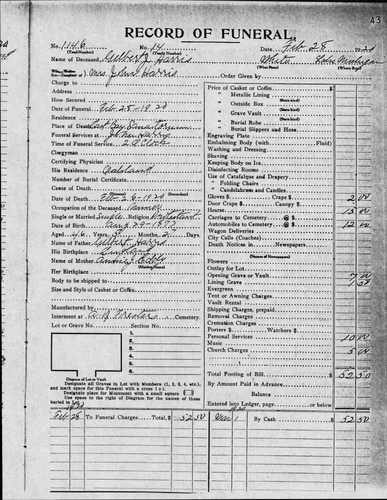 43
RECORD OF FUNERAL
No. 1146 No. 14 Date Feb 28 1920
(Total Number) (Yearly Number)
Name of Deceased Gilbert J Harris White
(What Race) (Where Born)
Mrs. John Harris Order Given by
Charge to
Address
How Secured
Date of Funeral Feb-28-1920
Residence
Place of Death
Funeral Services at
Time of Funeral Service 2 O Clock
Clergyman
Certifying Physician
His Residence
Number of Burial Certificate
Cause of Death
(Primary) (Secondary)
Date of Death Feb-26-1920
Occupation of the Deceased
Single or Married Single Religion
Date of Birth Aug-24-
Aged 46 Years Months 2 Days
Name of Father Gilbert Harris
His Birthplace
Name of Mother
(Maiden Name)
Her Birthplace
Body to be shipped to
Size and Style of Casket or Coffin
Manufactured by
Interment at Cemetery
Lot or Grave No. Section No.
1
2
3
4
5
6
Diagram of Lot or Vault
Designate all Graves in Lot with Numbers (1, 2, 3, 4, etc.), and mark space for this Funeral with a cross (+).
Designate place for Monument with a small square □
Use space to the right of Diagram for the names of those buried in Lot.
Price of Casket or Coffin
" Metallic Lining
(State kind)
" Outside Box
(State kind)
" Grave Vault
(State kind)
" Burial Robe
(State kind)
" Burial Slippers and Hose
Engraving Plate
Embalming Body (with Fluid)
Washing and Dressing
Shaving
Keeping Body on Ice
Disinfecting Rooms
Use of Catafalque and Drapery
" Folding Chairs
" Candelabrum and Candles
Gloves $ Crape $ 2 00
Door Crape $
Hearse 15 00
Carriages to Cemetery @ $
Automobiles to Cemetery @ $ 12 00
Wagon Deliveries
City Calls (Coaches)
Death Notices in Newspapers
(Names of Newspapers)
Flowers
Outlay for Lot
Opening Grave or Vault 7 00
Lining Grave 1 50
Evergreen
Tent or Awning Charges
Vault Rental
Shipping Charges, prepaid
Removal Charges
Cremation Charges
Porters $ Watchers $
Personal Services 10 00
Music
Church Charges 5 00
Total Footing of Bill 52 50
By Amount Paid in Advance
Balance
Entered into Ledger, page or below.
Feb 28 To Funeral Charges Total, $ 52 50 Mar 1 By Cash $ 52 50